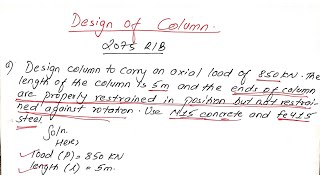 Design of Column.
2075 R/B
Q) Design column to carry an axial load of 850 KN. The
length of the column is 5m and the ends of column
are properly restrained in position but not restrai-
ned against rotation. Use M15 concrete and Fe415
steel
Soln.
Here,
Load (P) = 850 KN
length (L) = 5m.